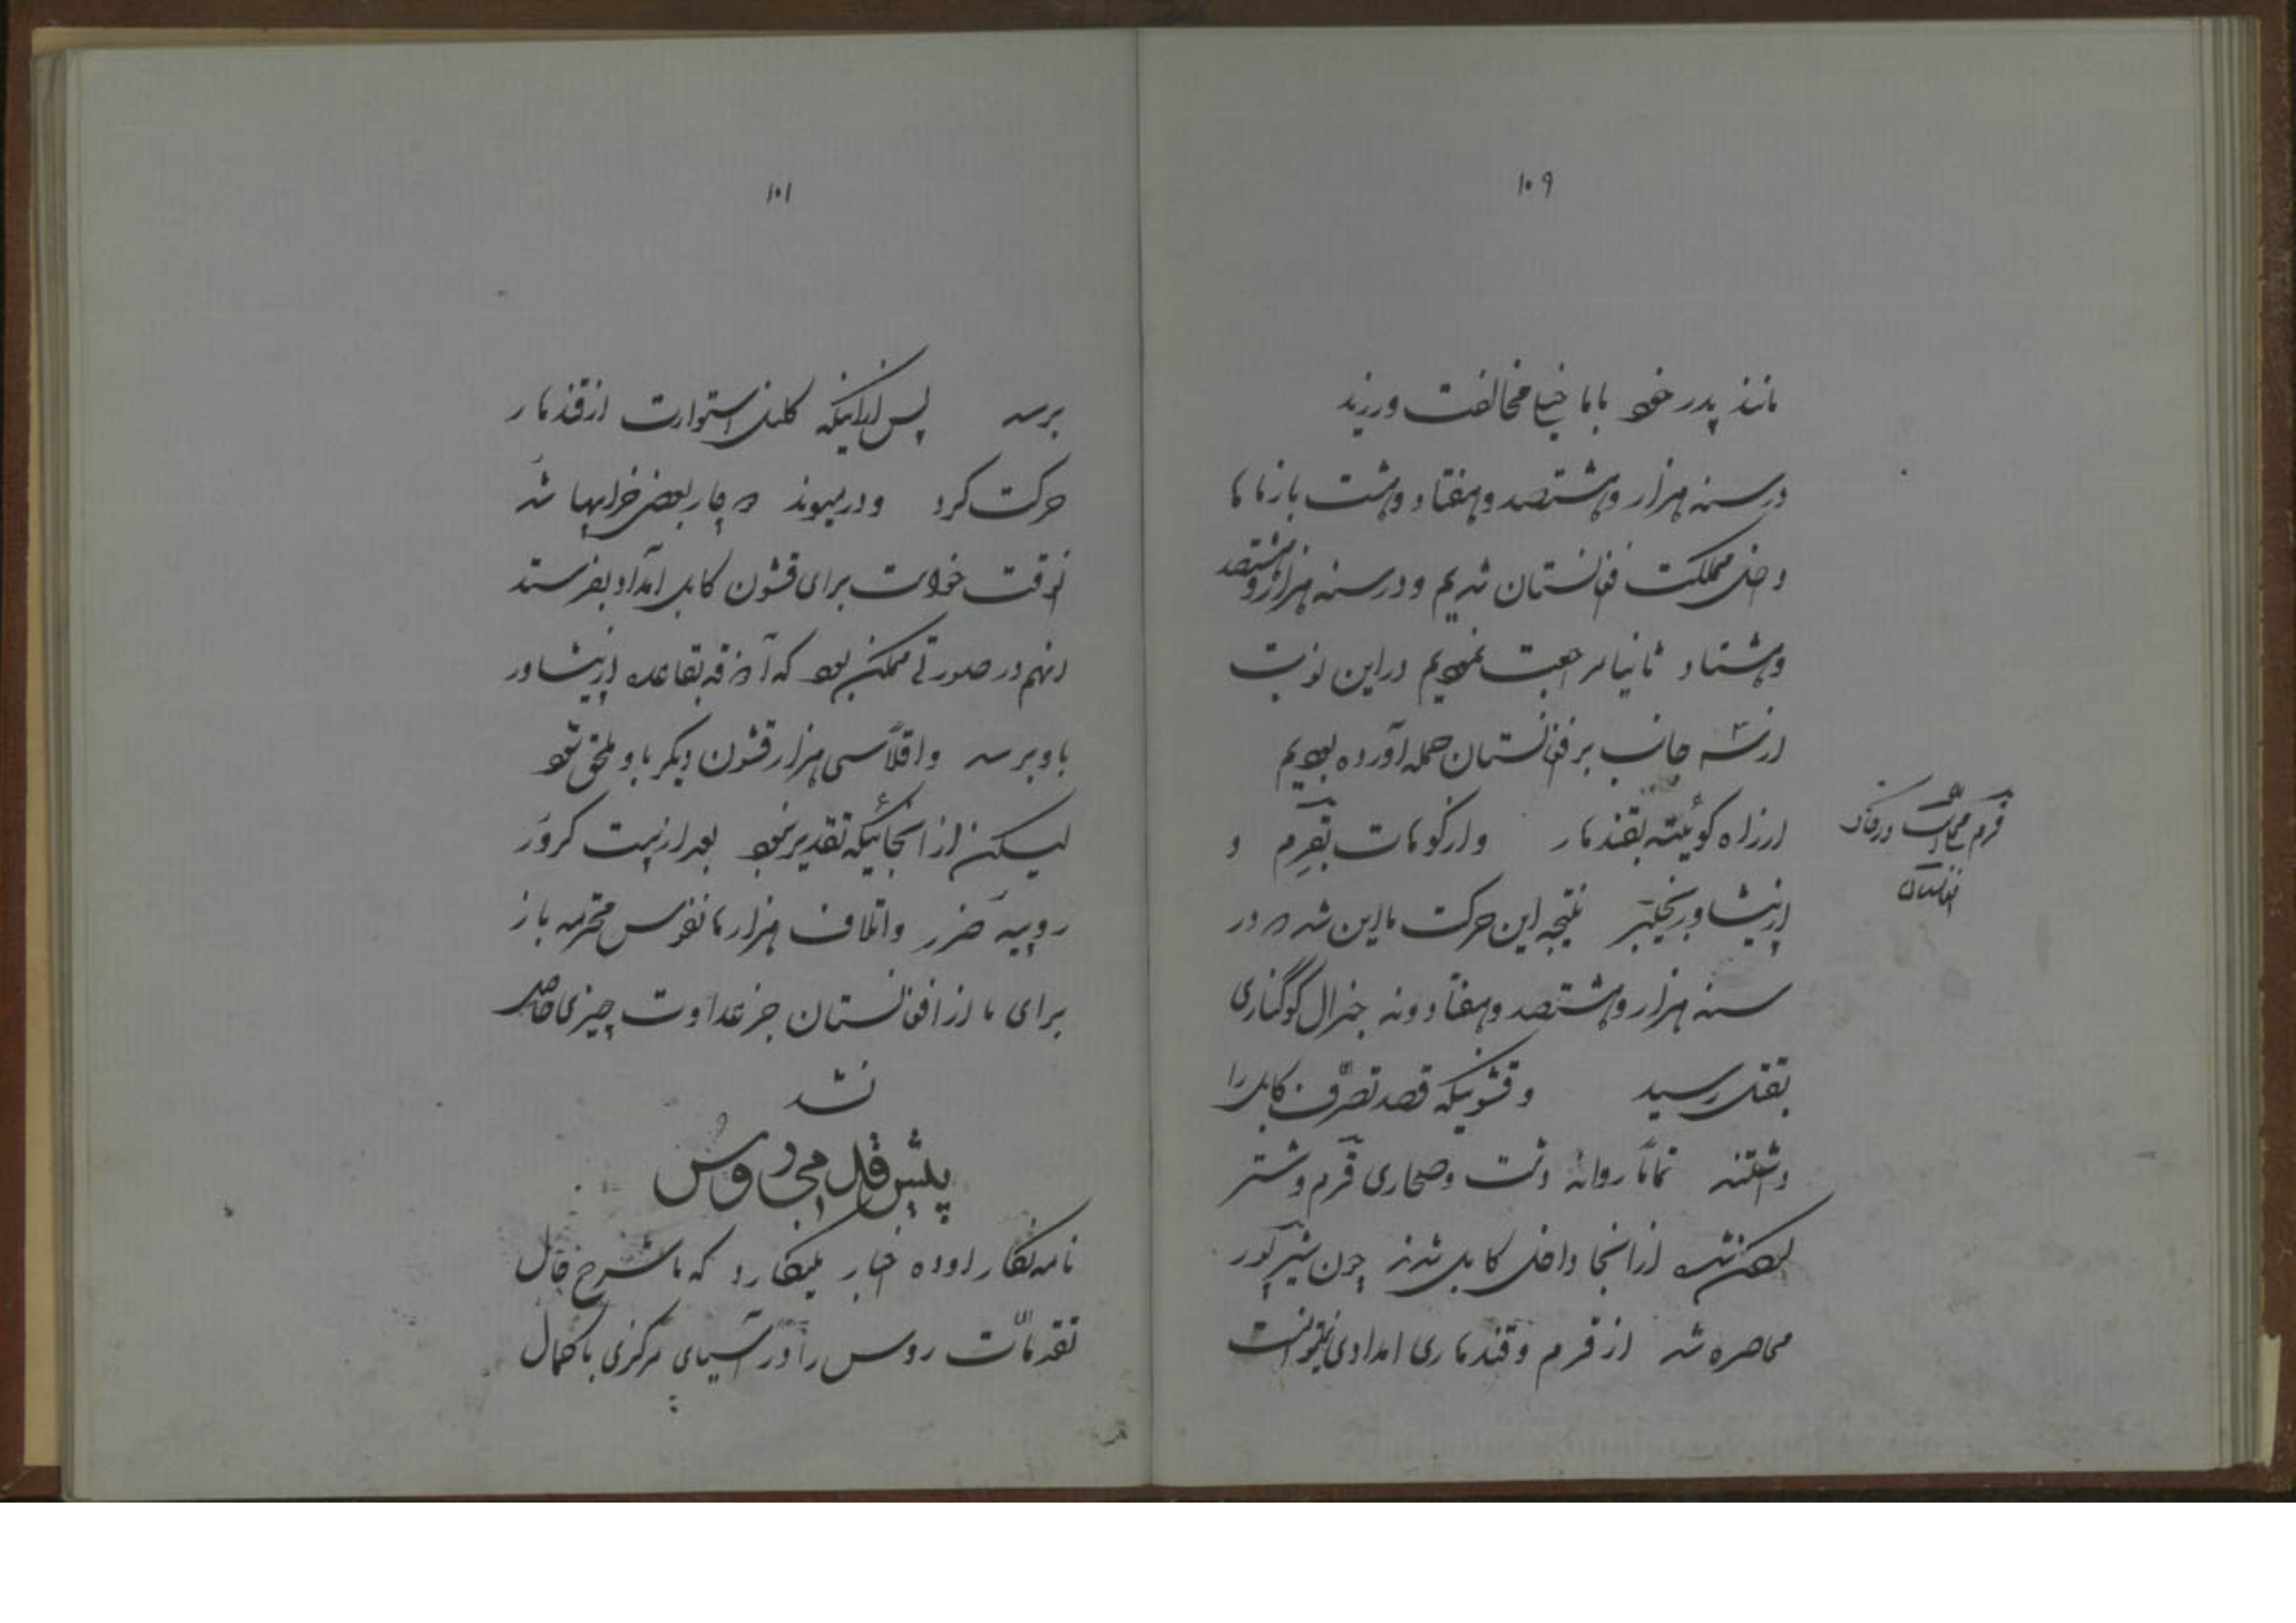 ۱۰۹
مانند پدر خود باما خیلی مخالفت ورزند
در سنه هزار و هشتصد و هفتاد و هشت باز ماها
داخل مملکت افغانستان شدیم و در سنه هزار و هشتصد
و هشتاد ثانیا مراجعت نمودیم در این نوبت
از سه جانب بر افغانستان حمله آورده بودیم
از راه کویته بقندهار و از کوهات بقرم و
از پیشاور بخیبر نتیجه این حرکت ما این شد که در
سنه هزار و هشتصد و هفتاد و نه جنرال کوکناری
بقتل رسید و قشونیکه قصد تصرف کابل را
داشتند تماما روانه دشت و صحاری قرم و شتر
گردن شده از آنجا داخل کابل شدند چون شیرپور
محاصره شد از قرم و قندهاری امدادی نتوانست
قرم
افغانستان
۱۰۱
برسد پس از اینکه کلنل استوارت از قندهار
حرکت کرد و در میوند دچار بعضی خرابیها شد
آنوقت خواست برای قشون کابل امداد بفرستد
آنهم در صورتی ممکن بود که آذوقه بقاعده از پیشاور
باو برسد و اقلاً سی هزار قشون دیگر باو ملحق شود
لیکن از آنجائیکه تقدیر نبود بعد از بیست کرور
روپیه ضرر و اتلاف هزارها نفوس محترمه باز
برای ما از افغانستان جز عداوت چیزی حاصل
نشد
پیش قدمی روس
نامه نگار اوده اخبار مینگارد که ما شرح حال
تقدمات روس را در آسیای مرکزی با کمال